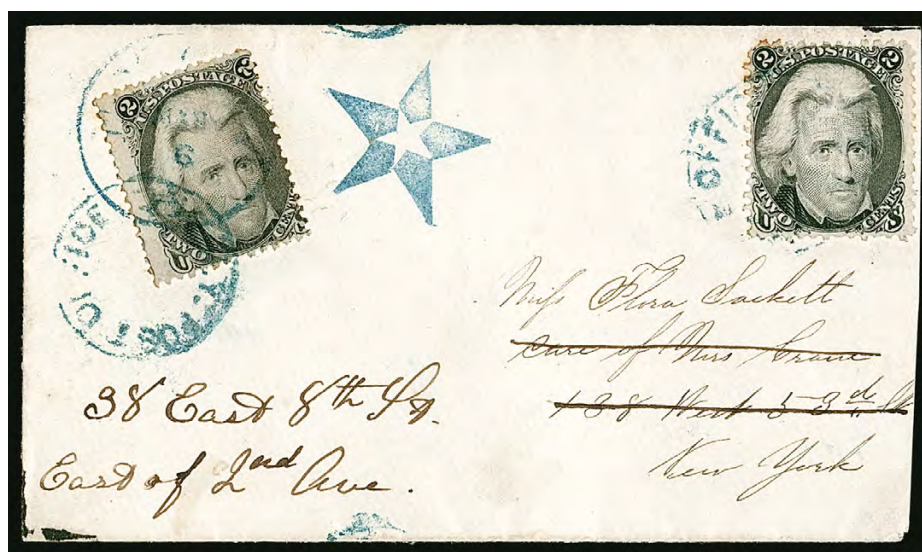 2 2
U.S. POSTAGE
TWO CENTS
U S
2 2
U.S. POSTAGE
TWO CENTS
U S
POST OFFICE
OFFIC
Miss Flora Sackett
care of Mrs Crane
138 West 53rd St
New York
38 East 8th St.
East of 2nd Ave.